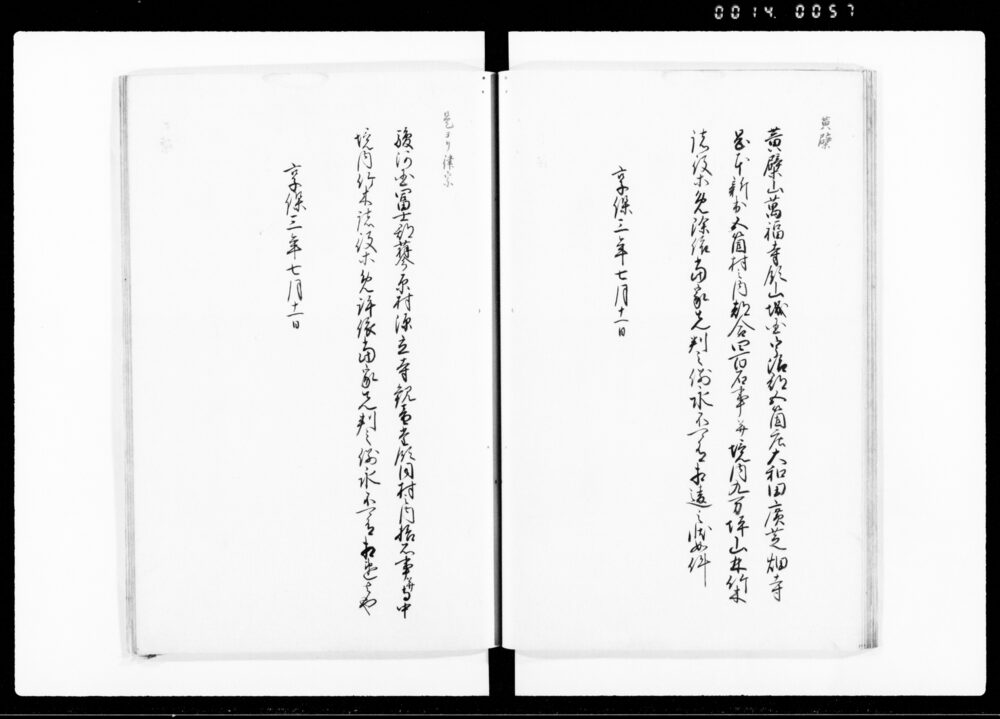 0014 0057
黄檗
黄檗山萬福寺領山城国宇治郡五箇庄大和田廣芝畑寺
新田五箇村之内都合四百石事并境内九万坪山林竹木
諸役等免除依當家先判之例永不可有相違之状如件
享保三年七月十一日
是ヨリ律宗
駿河国冨士郡蓼原村源立寺観音堂領同村之内拾石事并寺中
境内竹木諸役等免許依當家先判之例永不可有相違者也
享保三年七月十一日